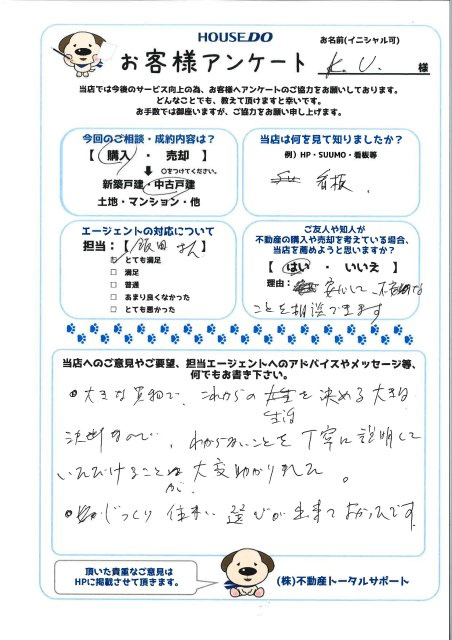 HOUSEDO
お客様アンケート
お名前(イニシャル可)
K.U. 様
当店では今後のサービス向上の為、お客様へアンケートのご協力をお願いしております。
どんなことでも、教えて頂けますと幸いです。
お手数では御座いますが、ご協力をお願い申し上げます。
今回のご相談・成約内容は?
【 購入 ・ 売却 】
○をつけてください。
新築戸建・中古戸建
土地・マンション・他
当店は何を見て知りましたか?
例) HP・SUUMO・看板等
看板、
エージェントの対応について
担当:【 飯田さん 】
とても満足
□ 満足
□ 普通
□ あまり良くなかった
□ とても悪かった
ご友人や知人が
不動産の購入や売却を考えている場合、
当店を薦めようと思いますか?
【 はい ・ いいえ 】
理由: 安心して、不安な
ことを相談できます
当店へのご意見やご要望、担当エージェントへのアドバイスやメッセージ等、
何でもお書き下さい。
●大きな買物で、これからの生活を決める大きな
決断なので、わからないことを丁寧に説明して
いただけることが大変助かりました。
●じっくり住まい選びが出来てよかったです。
頂いた貴重なご意見は
HPに掲載させて頂きます。
(株)不動産トータルサポート